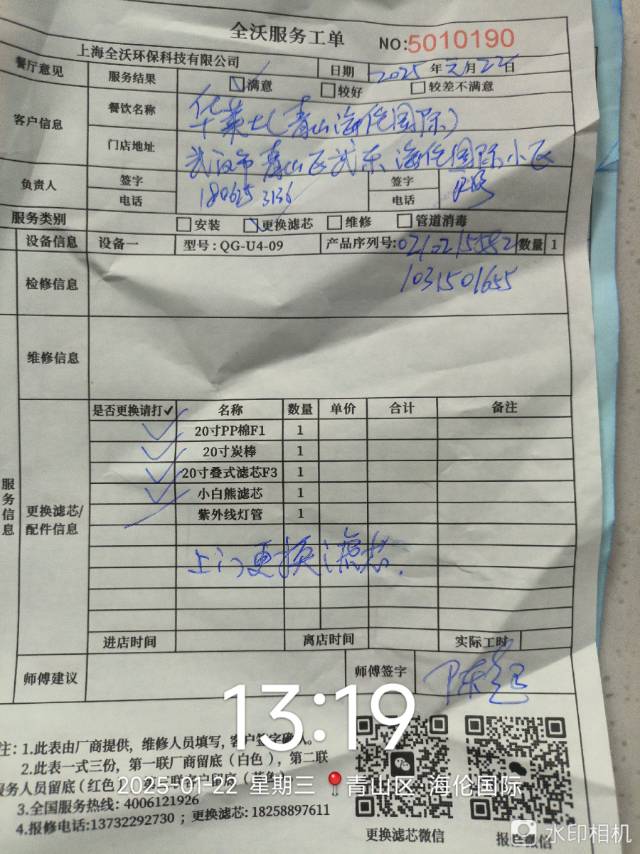 全沃服务工单 NO:5010190
上海全沃环保科技有限公司 日期 2025年元月22日
餐厅意见 服务结果 满意 较好 较差不满意
客户信息 餐饮名称 华莱士(青山海伦国际)
门店地址 武汉市青山区武东海伦国际小区
负责人 签字 签字
电话 电话
服务类别 安装 更换滤芯 维修 管道消毒
设备信息 设备一 型号:QG-U4-09 产品序列号:0210215552 数量 1
检修信息 1031501655
维修信息
服务信息
更换滤芯/配件信息
是否更换请打✓ 名称 数量 单价 合计 备注
✓ 20寸PP棉F1 1
✓ 20寸炭棒 1
✓ 20寸叠式滤芯F3 1
✓ 小白熊滤芯 1
紫外线灯管 1
上门更换滤芯.
进店时间 离店时间 实际工时
师傅建议 师傅签字
13:19
注:1.此表由厂商提供，维修人员填写，客户签字确认。
2.此表一式三份，第一联厂商留底（白色），第二联
服务人员留底（红色
2025-01-22 星期三 青山区·海伦国际
3.全国服务热线: 4006121926
4.报修电话:13732292730 ; 更换滤芯: 18258897611
更换滤芯微信
水印相机